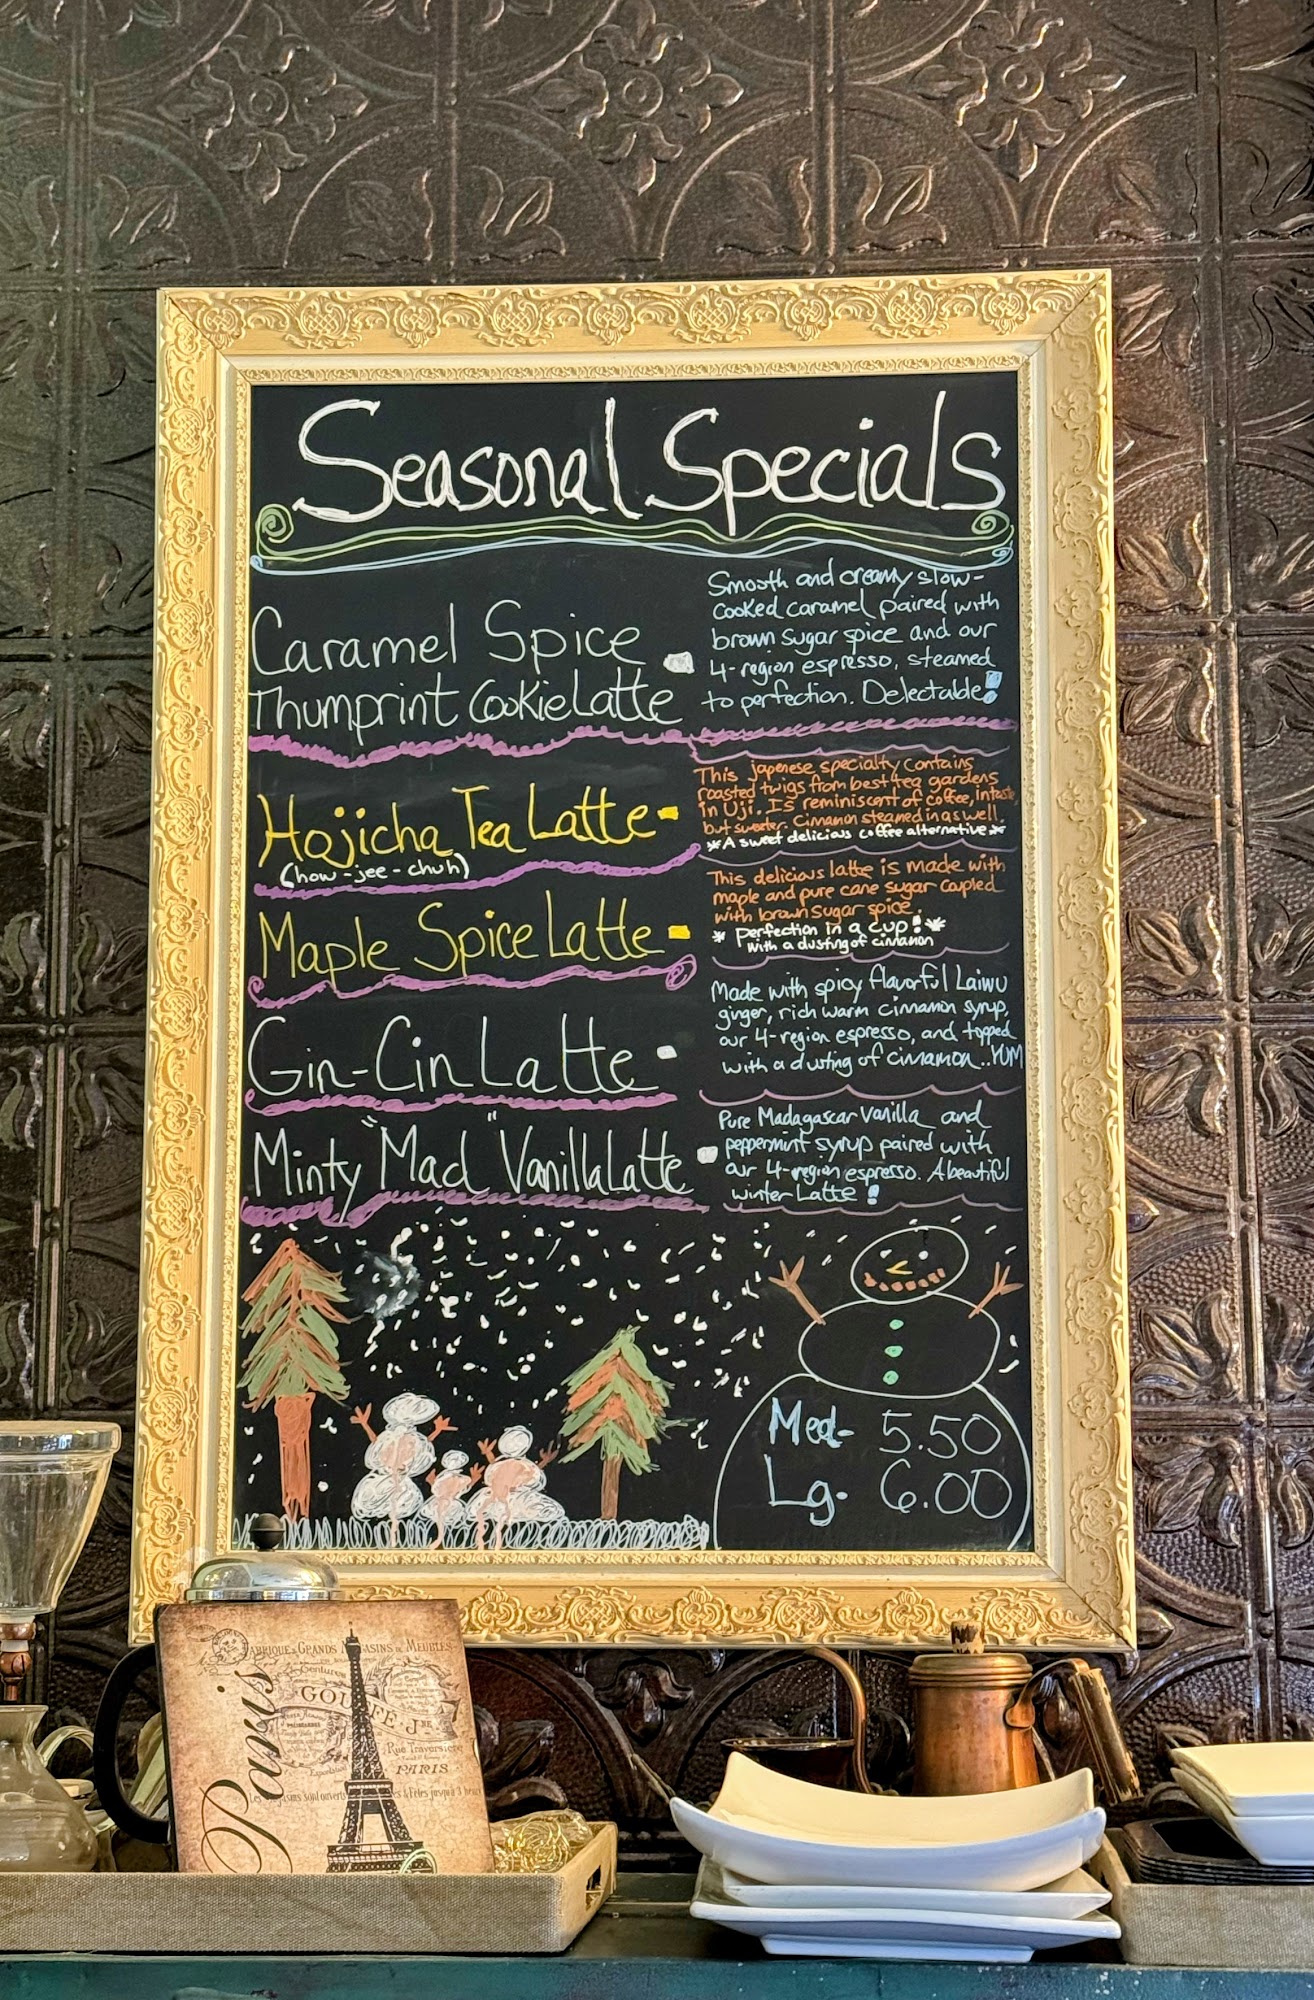 Seasonal Specials
Caramel Spice
Thumprint Cookie Latte
Smooth and creamy slow-
cooked caramel paired with
brown sugar spice and our
4-region espresso, steamed
to perfection. Delectable!
Hojicha Tea Latte-
(how-jee-chuh)
This japenese specialty contains
roasted twigs from best tea gardens
in Uji. Is reminiscent of coffee, in taste,
but sweeter. Cinnamon steamed in as well.
*A sweet delicious coffee alternative*
Maple Spice Latte-
This delicious latte is made with
maple and pure cane sugar coupled
with brown sugar spice.
* perfection in a cup! *
with a dusting of cinnamon
Gin-Cin Latte-
Made with spicy flavorful Laiwu
ginger, rich warm cinnamon syrup,
our 4-region espresso, and topped
with a dusting of cinnamon...YUM
Minty "Mad" Vanilla Latte-
Pure Madagascar Vanilla and
peppermint syrup paired with
our 4-region espresso. A beautiful
winter Latte!
Med- 5.50
Lg- 6.00
Paris
GOU
Rue Traversière
PARIS